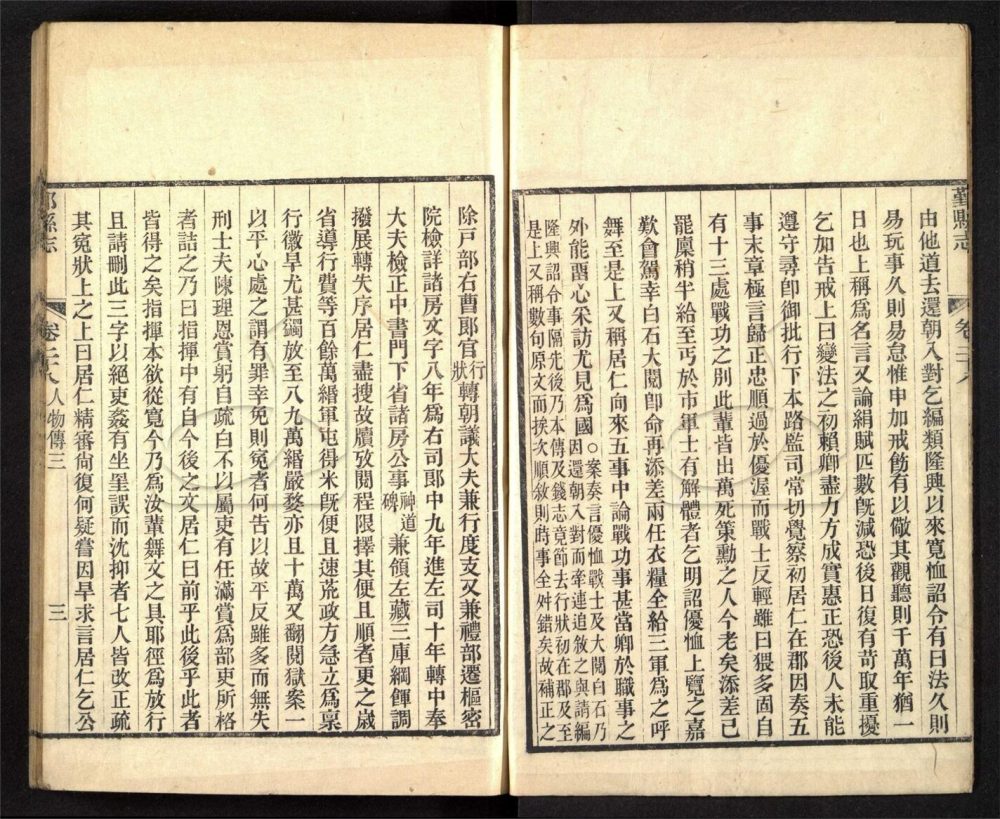 鄞縣志
卷二十八
由他道去還朝入對乞編類隆興以來寬恤詔令有曰法久則
易玩事久則易怠惟申加戒飭有以儆其觀聽則千萬年猶一
日也上稱爲名言又論絹賦匹數旣減恐後日復有苛取重擾
乞加告戒上曰變法之初賴卿盡力方成實惠正恐後人未能
遵守尋卽御批行下本路監司常切覺察初居仁在郡因奏五
事末章極言歸正忠順過於優渥而戰士反輕雖曰猥多固自
有十三處戰功之別此輩皆出萬死策勳之人今老矣添差已
罷廩稍半給至丐於市軍士有解體者乞明詔優恤上覽之嘉
歎會駕幸白石大閱卽命再添差兩任衣糧全給三軍爲之呼
舞至是上又稱居仁向來五事中論戰功事甚當卿於職事之
外能盡心采訪尤見爲國○案奏言優恤戰士及大閱白石乃
因還朝入對而牽連追敘之與請編
隆興詔令事隔先後乃本傳及錢志竟節去行狀初在郡及至
是上又稱數句原文而挨次順敘則時事全舛錯矣故補正之
除戸部右曹郎官行狀轉朝議大夫兼行度支又兼禮部遷樞密
院檢詳諸房文字八年爲右司郎中九年進左司十年轉中奉
大夫檢正中書門下省諸房公事神道碑兼領左藏三庫綱餫調
撥展轉失序居仁盡搜故牘攷閱程限擇其便且順者更之歲
省導行費等百餘萬緡軍屯得米旣便且速荒政方急立爲稟
行徽旱尤甚蠲放至八九萬緡嚴婺亦且十萬又翻閱獄案一
以平心處之謂有罪幸免則冤者何告以故平反雖多而無失
刑士夫陳理恩賞躬自疏白不以屬吏有任滿賞爲部吏所格
者詰之乃曰指揮中有自今後之文居仁曰前乎此後乎此者
皆得之矣指揮本欲從寬今乃爲汝輩舞文之具耶徑爲放行
且請刪此三字以絕吏姦有坐罣誤而沈抑者七人皆改正疏
其冤狀上之上曰居仁精審尙復何疑嘗因旱求言居仁乞公
鄞縣志
卷二十八人物傳三
三